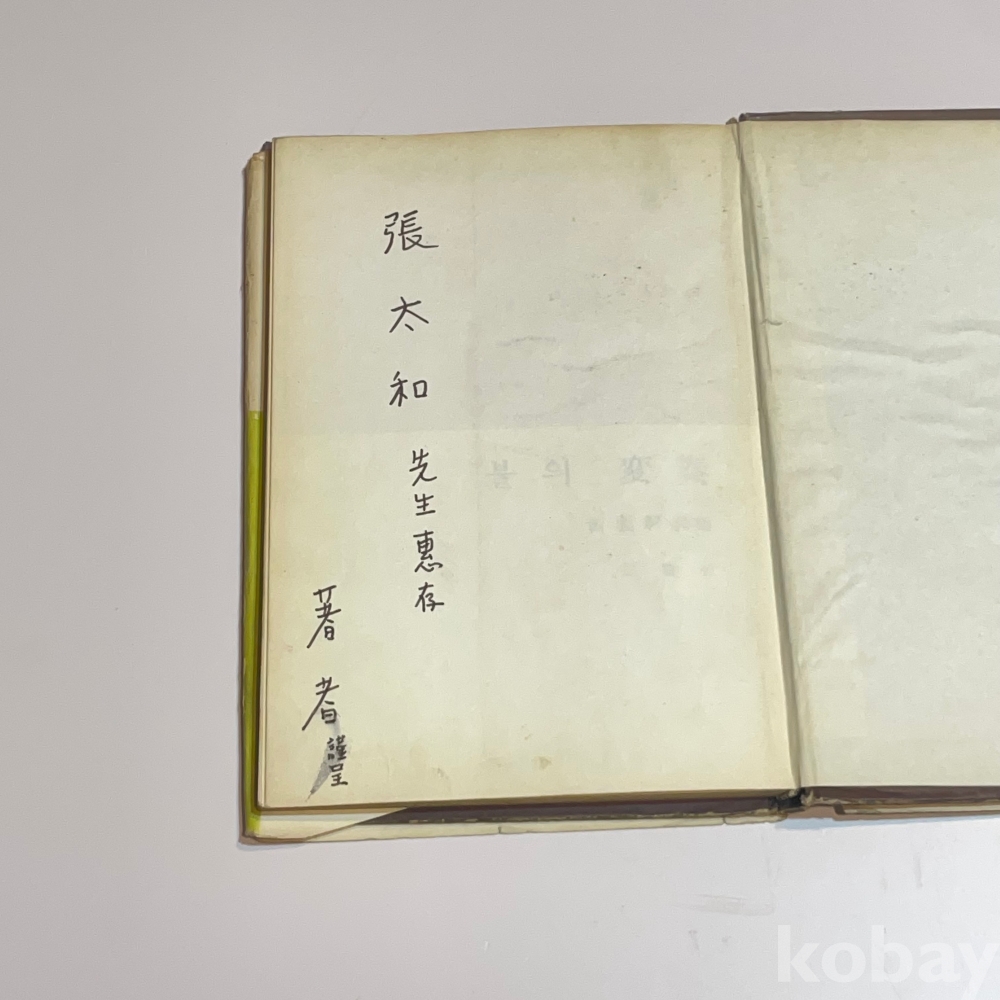 張太和先生惠存
著者謹呈
불의
kobay